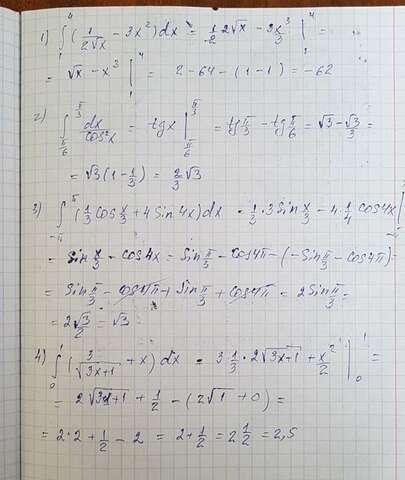 1) ∫₁⁴ (1/(2√x) - 3x²) dx = 1/2 · 2√x - 3x³/3 |₁⁴ =
= √x - x³ |₁⁴ = 2 - 64 - (1 - 1) = -62
2) ∫_{π/6}^{π/3} dx/cos²x = tg x |_{π/6}^{π/3} = tg π/3 - tg π/6 = √3 - √3/3 =
= √3 (1 - 1/3) = 2/3 √3
3) ∫_{-π}^{π} (1/3 cos x/3 + 4 sin 4x) dx = 1/3 · 3 sin x/3 - 4 · 1/4 cos 4x |_{-π}
= sin x/3 - cos 4x = sin π/3 - cos 4π - (-sin π/3 - cos 4π) =
= sin π/3 - cos 4π + sin π/3 + cos 4π = 2 sin π/3 =
= 2√3/2 = √3
4) ∫₀¹ (3/√(3x+1) + x) dx = 3 1/3 · 2√(3x+1) + x²/2 |₀¹ =
= 2√(3·1+1) + 1/2 - (2√1 + 0) =
= 2·2 + 1/2 - 2 = 2 + 1/2 = 2 1/2 = 2,5